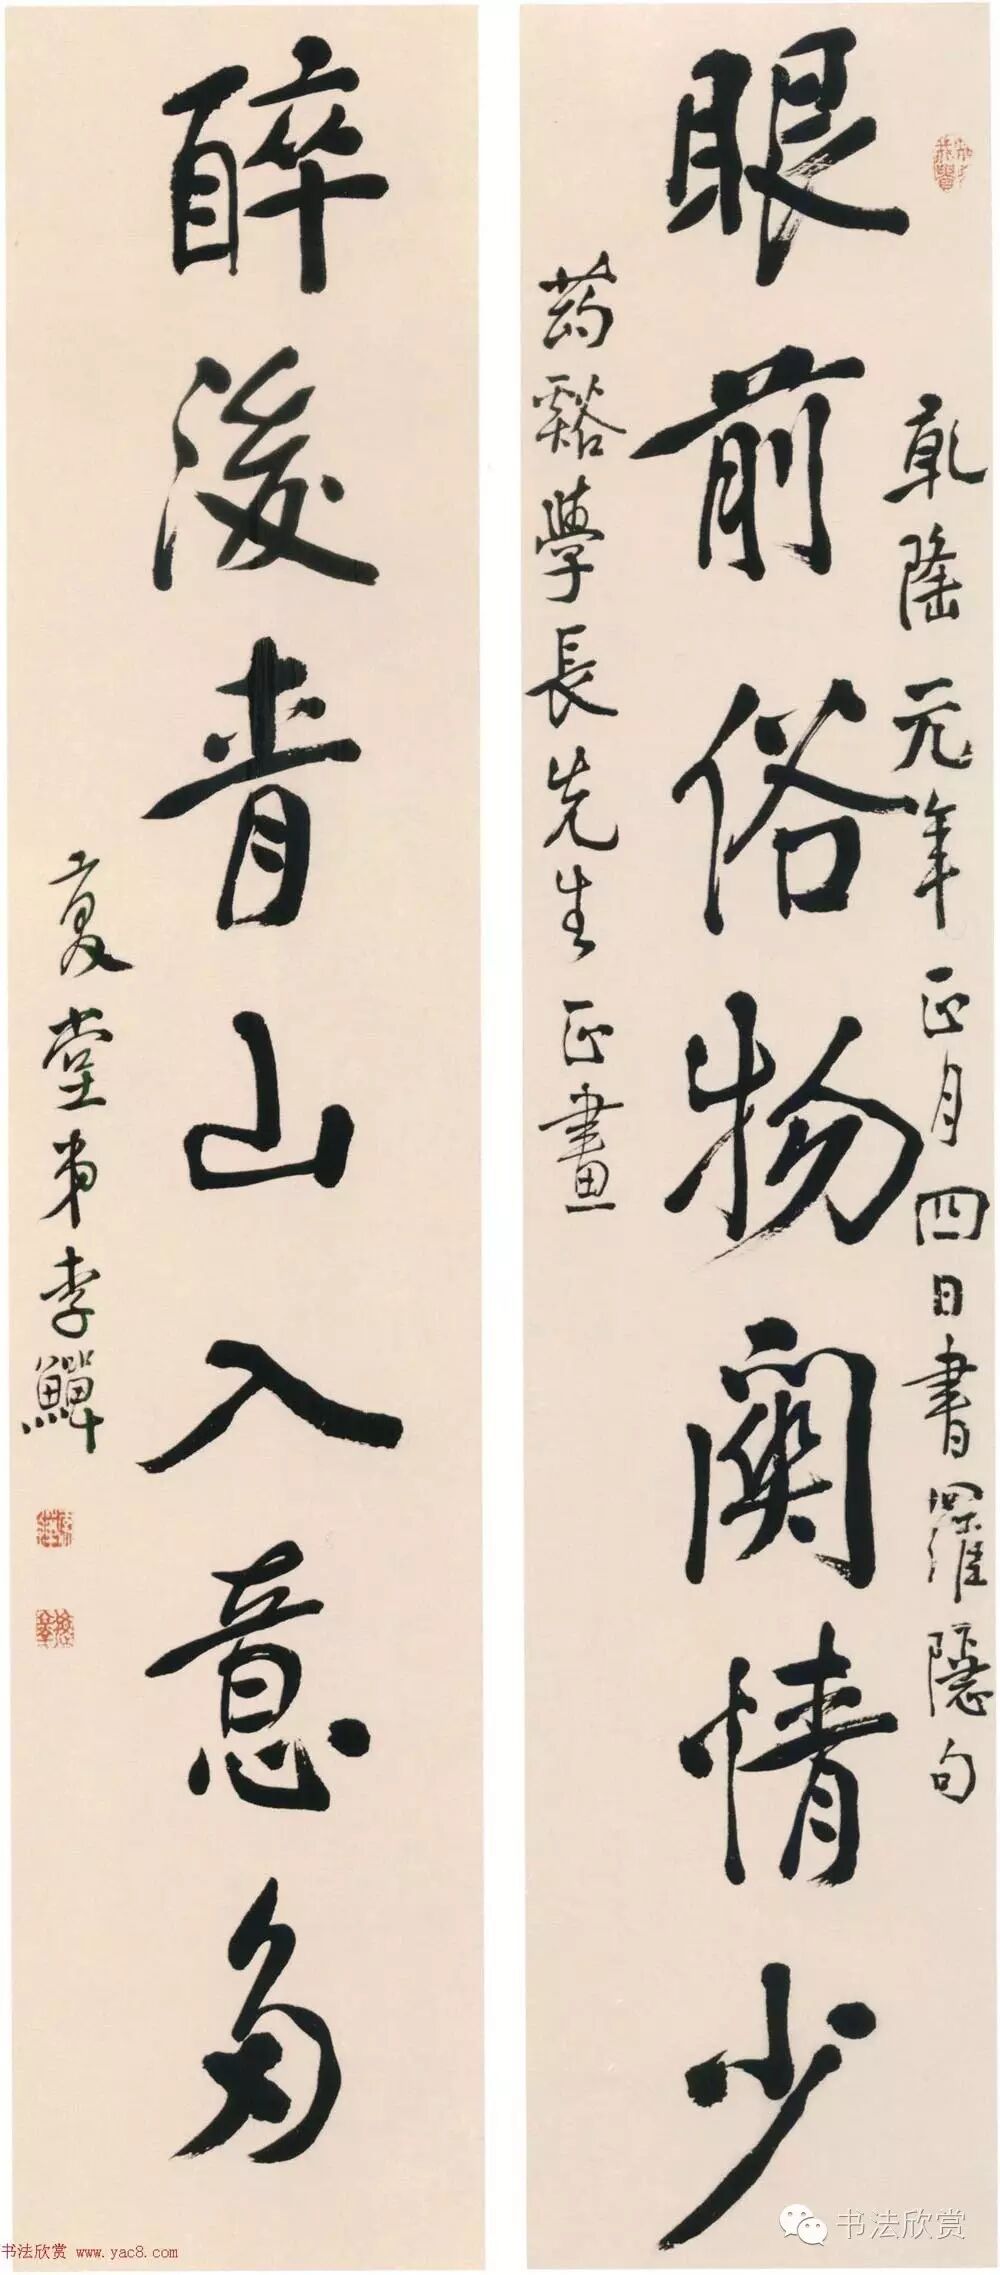 眼前俗物關情少
乾隆元年正月四日書羅隱句
药谿學長先生正畫
醉後青山入意多
復堂弟李鱓
书法欣赏
书法欣赏 www.yac8.com